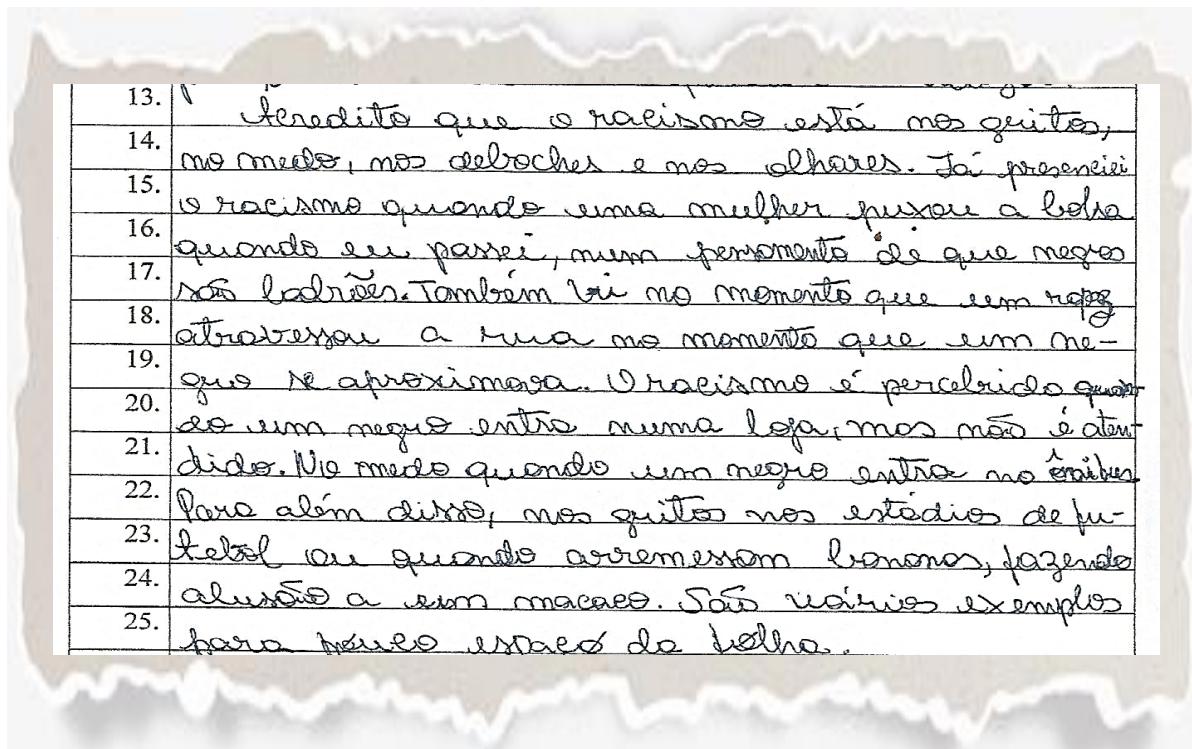 13.
Acredito que o racismo está nos gritos,
14.
no medo, nos deboches e nos olhares. Já presenciei
15.
o racismo quando uma mulher puxou a bolsa
16.
quando eu passei, num pensamento de que negros
17.
são ladrões. Também vi no momento que um rapaz
18.
atravessou a rua no momento que um ne-
19.
gro se aproximava. O racismo é percebido quan-
20.
do um negro entra numa loja, mas não é aten-
21.
dido. No medo quando um negro entra no ônibus.
22.
Para além disso, nos gritos nos estádios de fu-
23.
tebol ou quando arremessam bananas, fazendo
24.
alusão a um macaco. São vários exemplos
25.
para pouco espaço da folha.